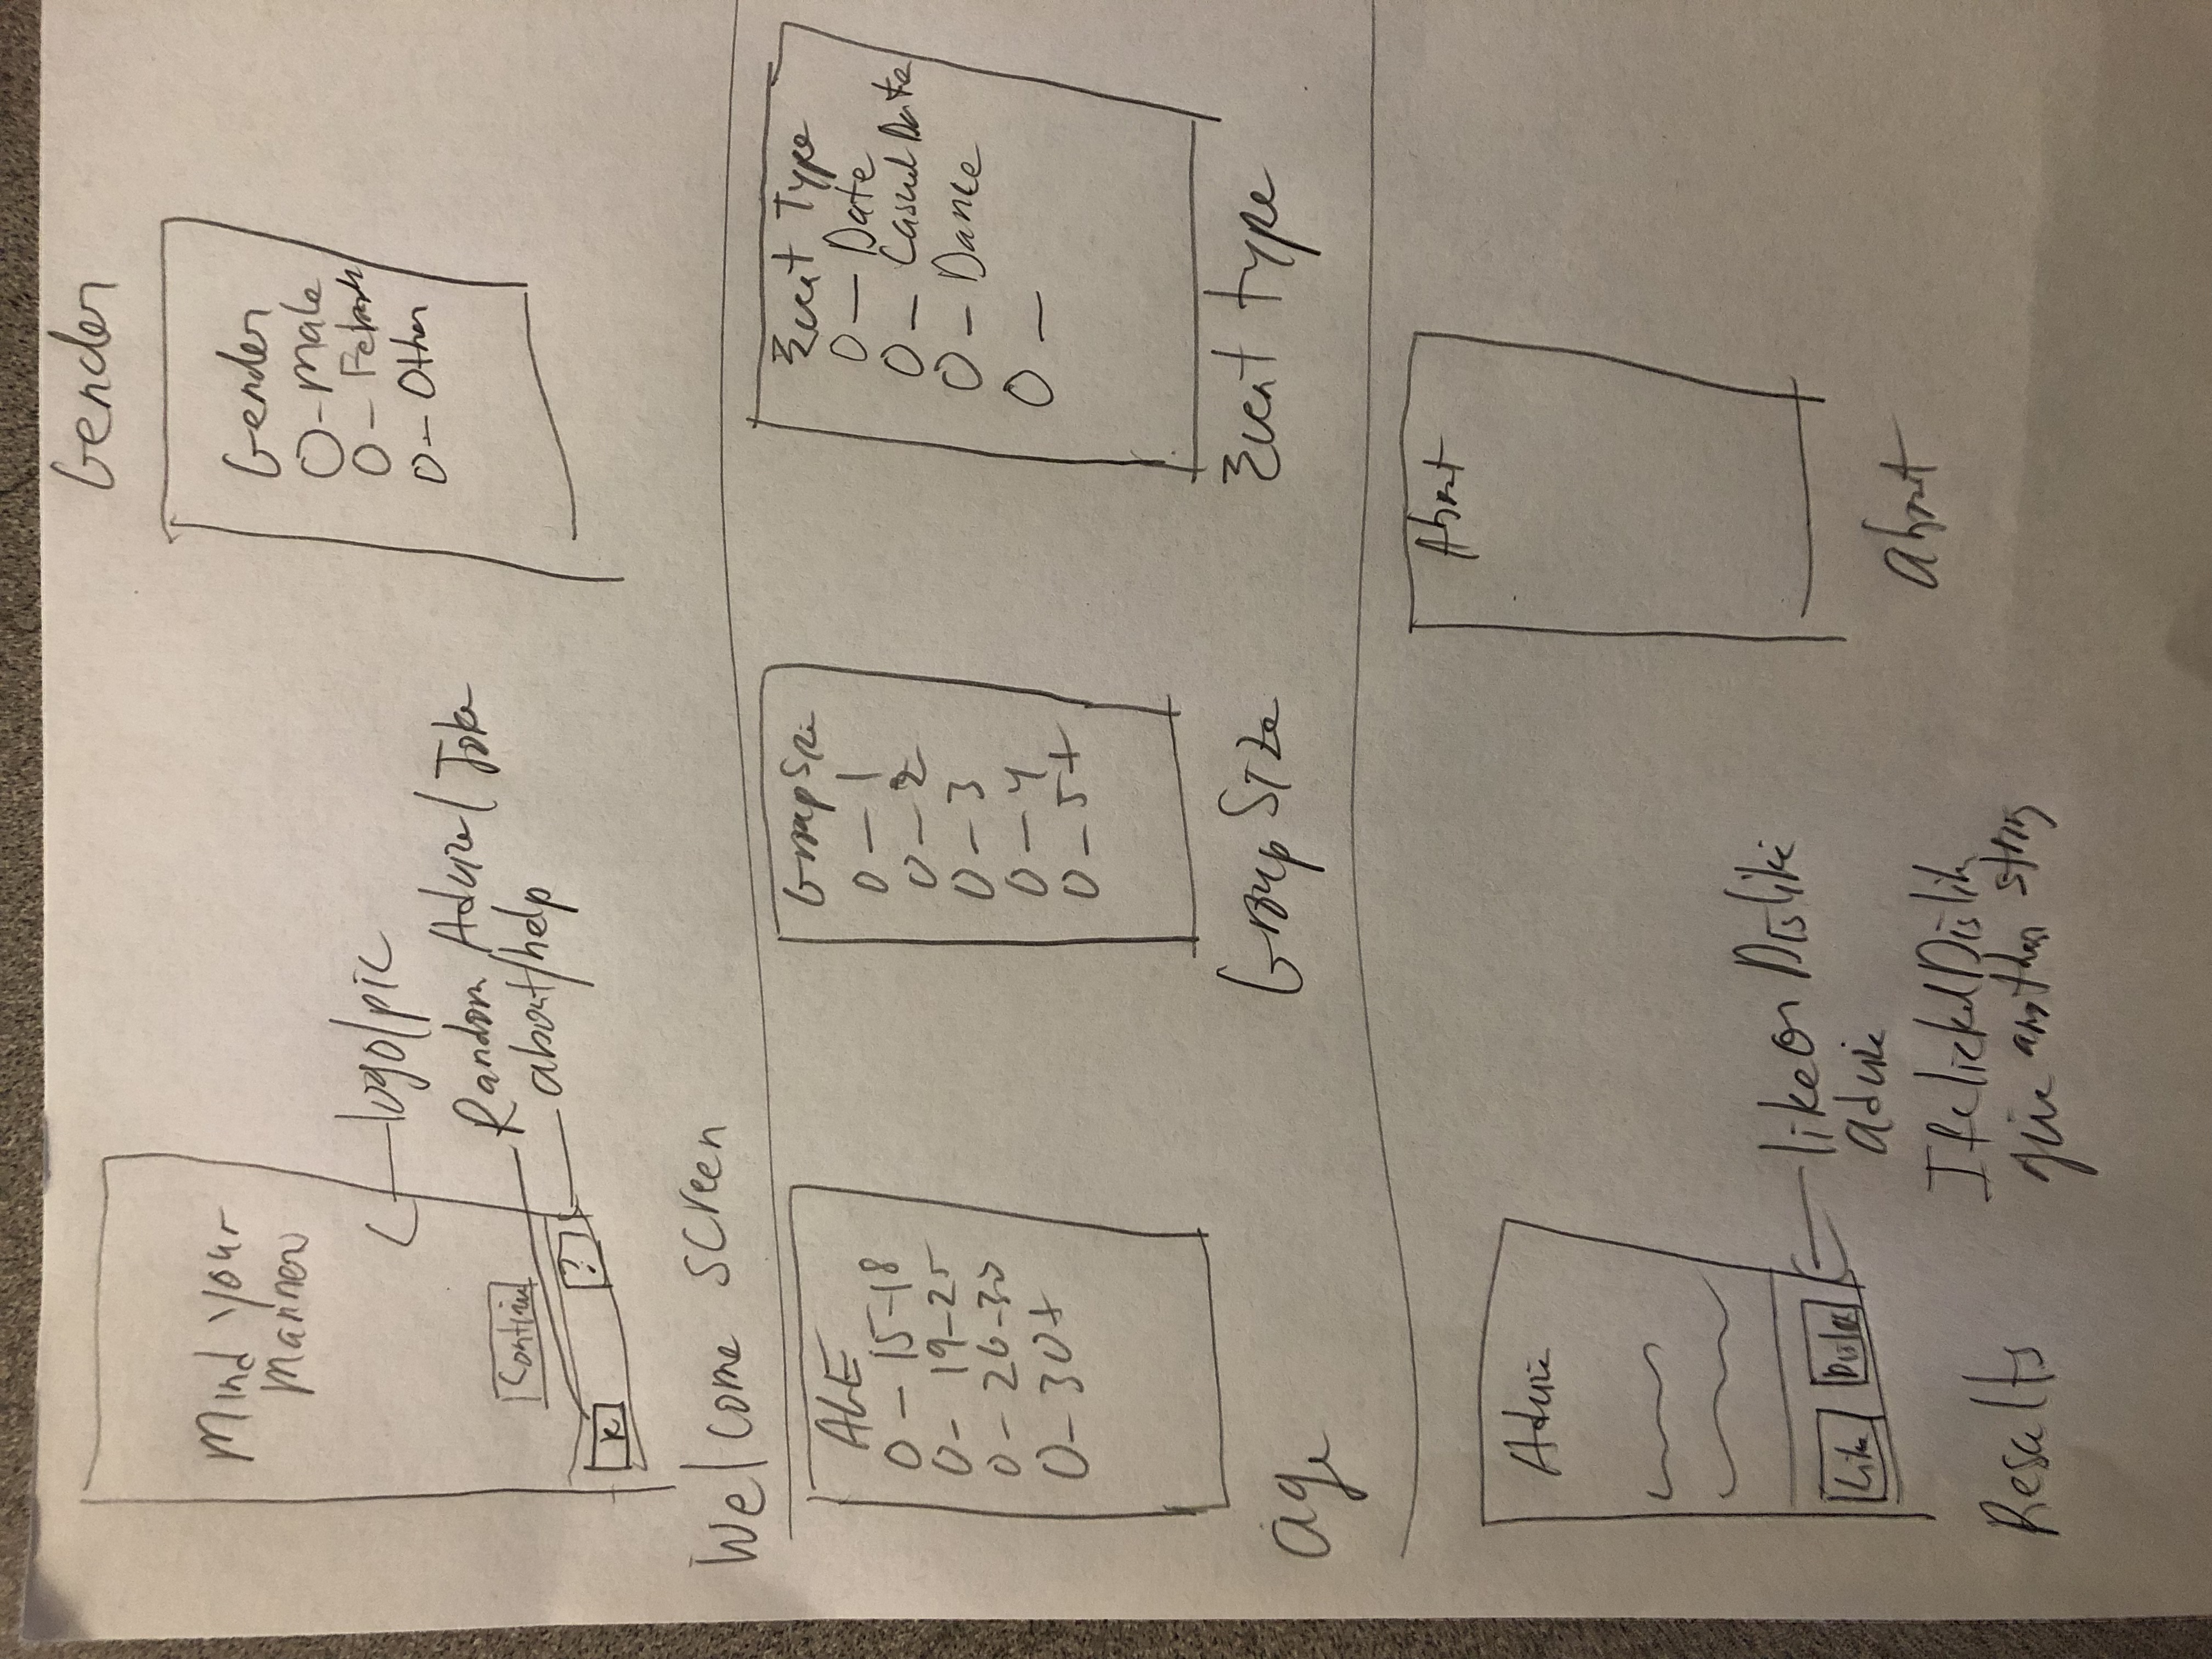 Mind Your
Manner
logo/pic
Random Advize/Joke
about/help
Continu
R
?
Welcome screen
Gender
Gender
O-Male
O-
O-Other
AGE
O-15-18
O-19-25
O-26-30
O-30+
Age
Group Size
O-1
O-2
O-3
O-4
O-5+
Group Size
Event Type
O-Date
O-Casual Date
O-Dance
O-
Event type
Advice
Like
like or Dislike
advice
If clicked Dislik
give another string
Results
About
about